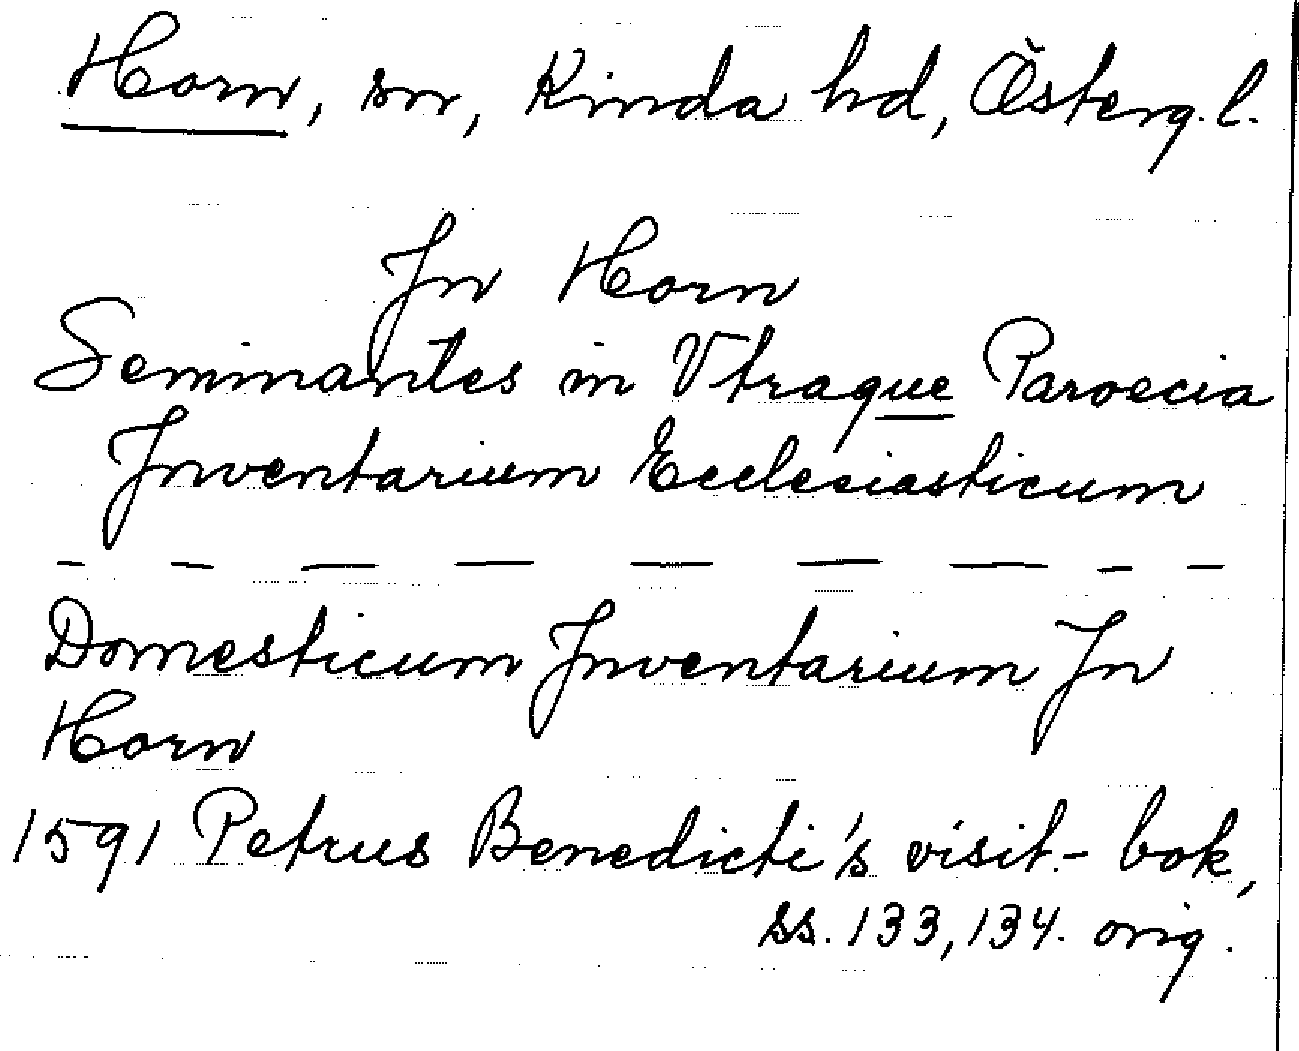 Horn, sn, Kinda hd, Österg.l.
In Horn
Seminantes in Vtraque Paroecia
Inventarium Ecclesiasticum
- - - - - - - - -
Domesticum Inventarium In
Horn
1591 Petrus Benedicti's visit.- bok,
ss. 133, 134. orig.